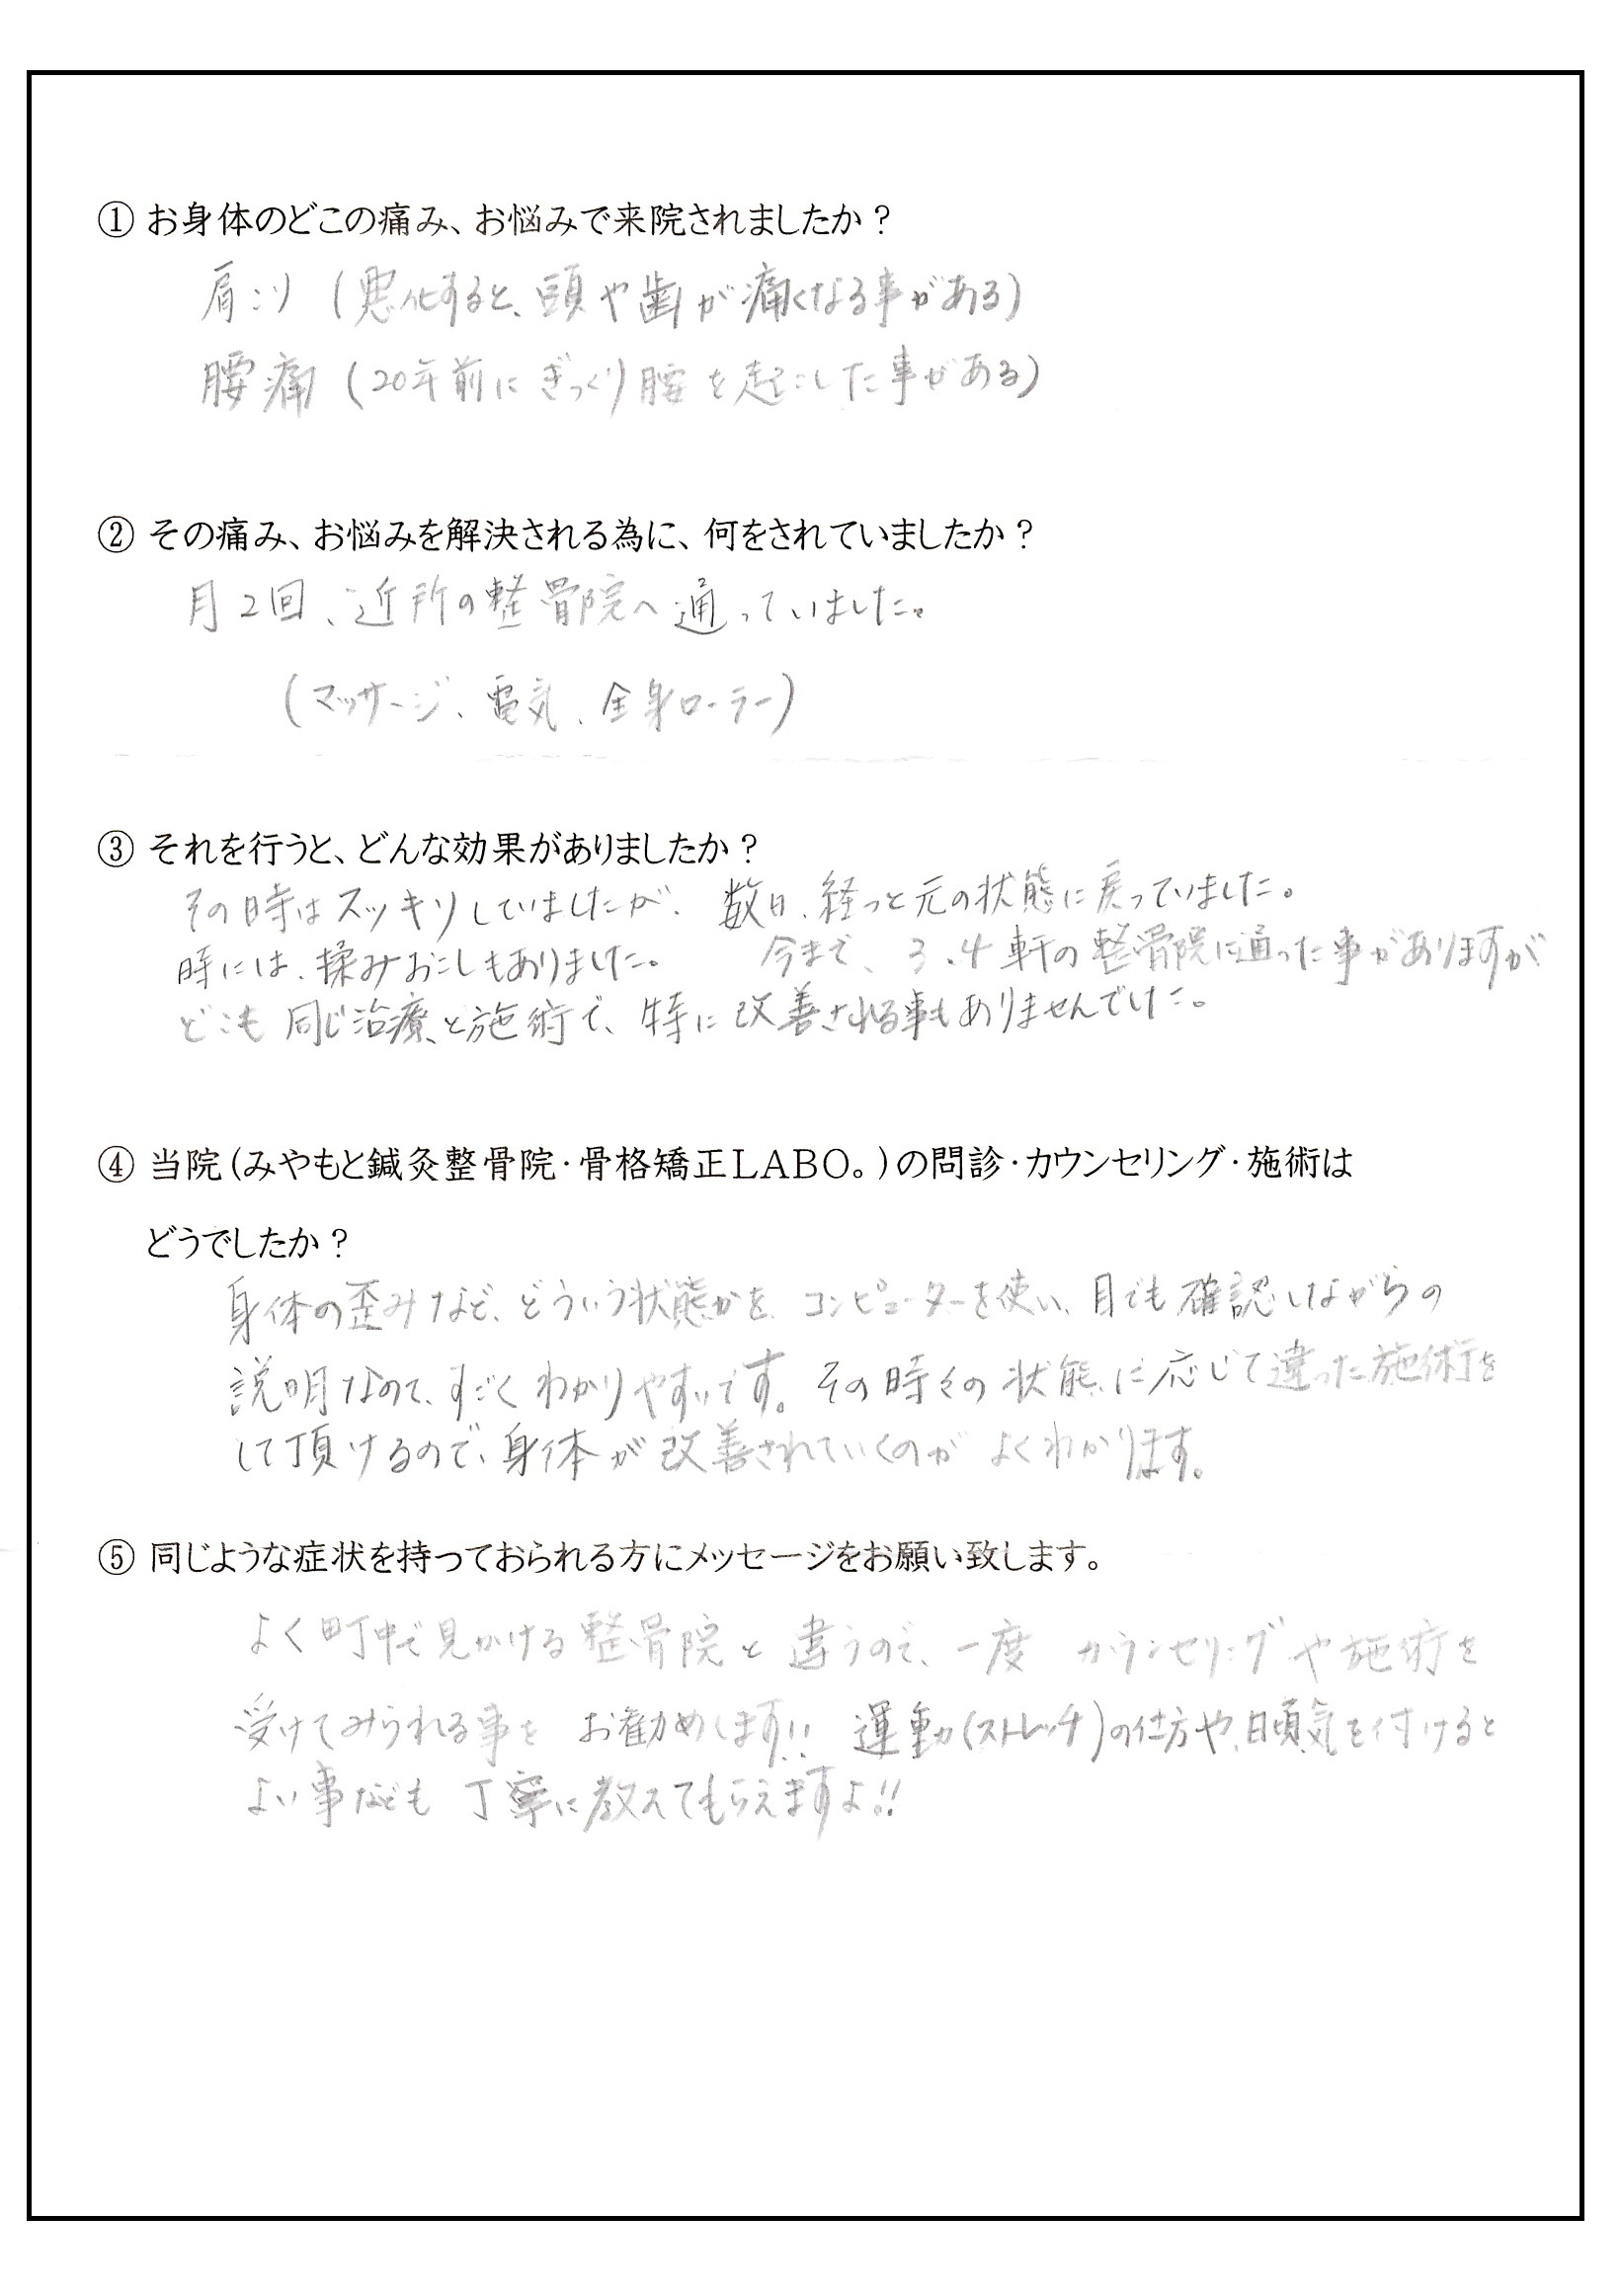 ① お身体のどこの痛み、お悩みで来院されましたか？
肩こり（悪化すると、頭や歯が痛くなる事がある）
腰痛（20年前にぎっくり腰を起こした事がある）
② その痛み、お悩みを解決される為に、何をされていましたか？
月2回、近所の整骨院へ通っていました。
（マッサージ、電気、全身ローラー）
③ それを行うと、どんな効果がありましたか？
その時はスッキリしていましたが、数日、経つと元の状態に戻っていました。
時には、揉みおこしもありました。　今まで、3、4軒の整骨院に通った事がありますが
どこも同じ治療、と施術で、特に改善される事もありませんでした。
④ 当院（みやもと鍼灸整骨院・骨格矯正LABO。）の問診・カウンセリング・施術は
どうでしたか？
身体の歪みなど、どういう状態かを、コンピューターを使い、目でも確認しながらの
説明なので、すごくわかりやすいです。その時々の状態に応じて違った施術を
して頂けるので、身体が改善されていくのがよくわかります。
⑤ 同じような症状を持っておられる方にメッセージをお願い致します。
よく町中で見かける整骨院と違うので、一度　カウンセリングや施術を
受けてみられる事を　お勧めします!!　運動（ストレッチ）の仕方や、日頃気を付けると
よい事なども　丁寧に教えてもらえますよ!!